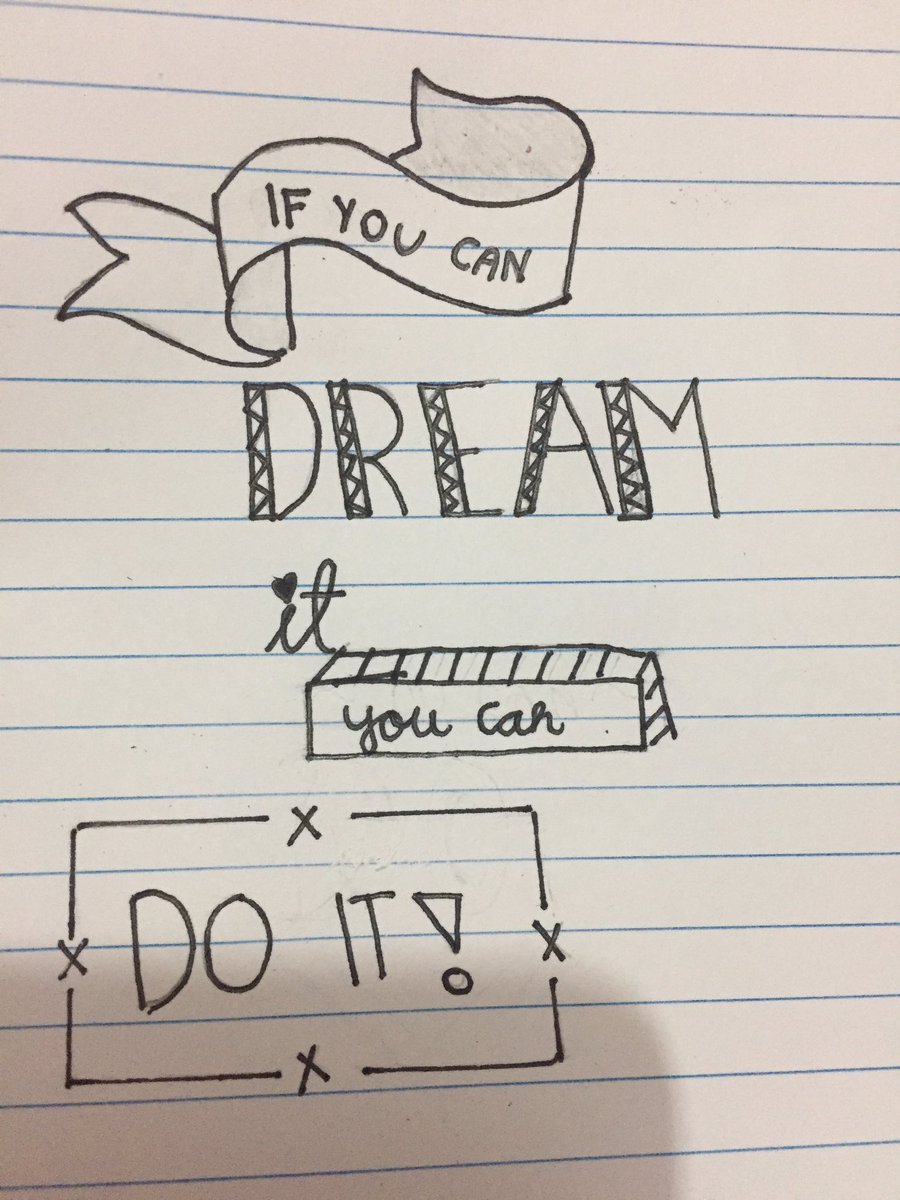 IF YOU CAN
DREAM
it
you can
DO IT!